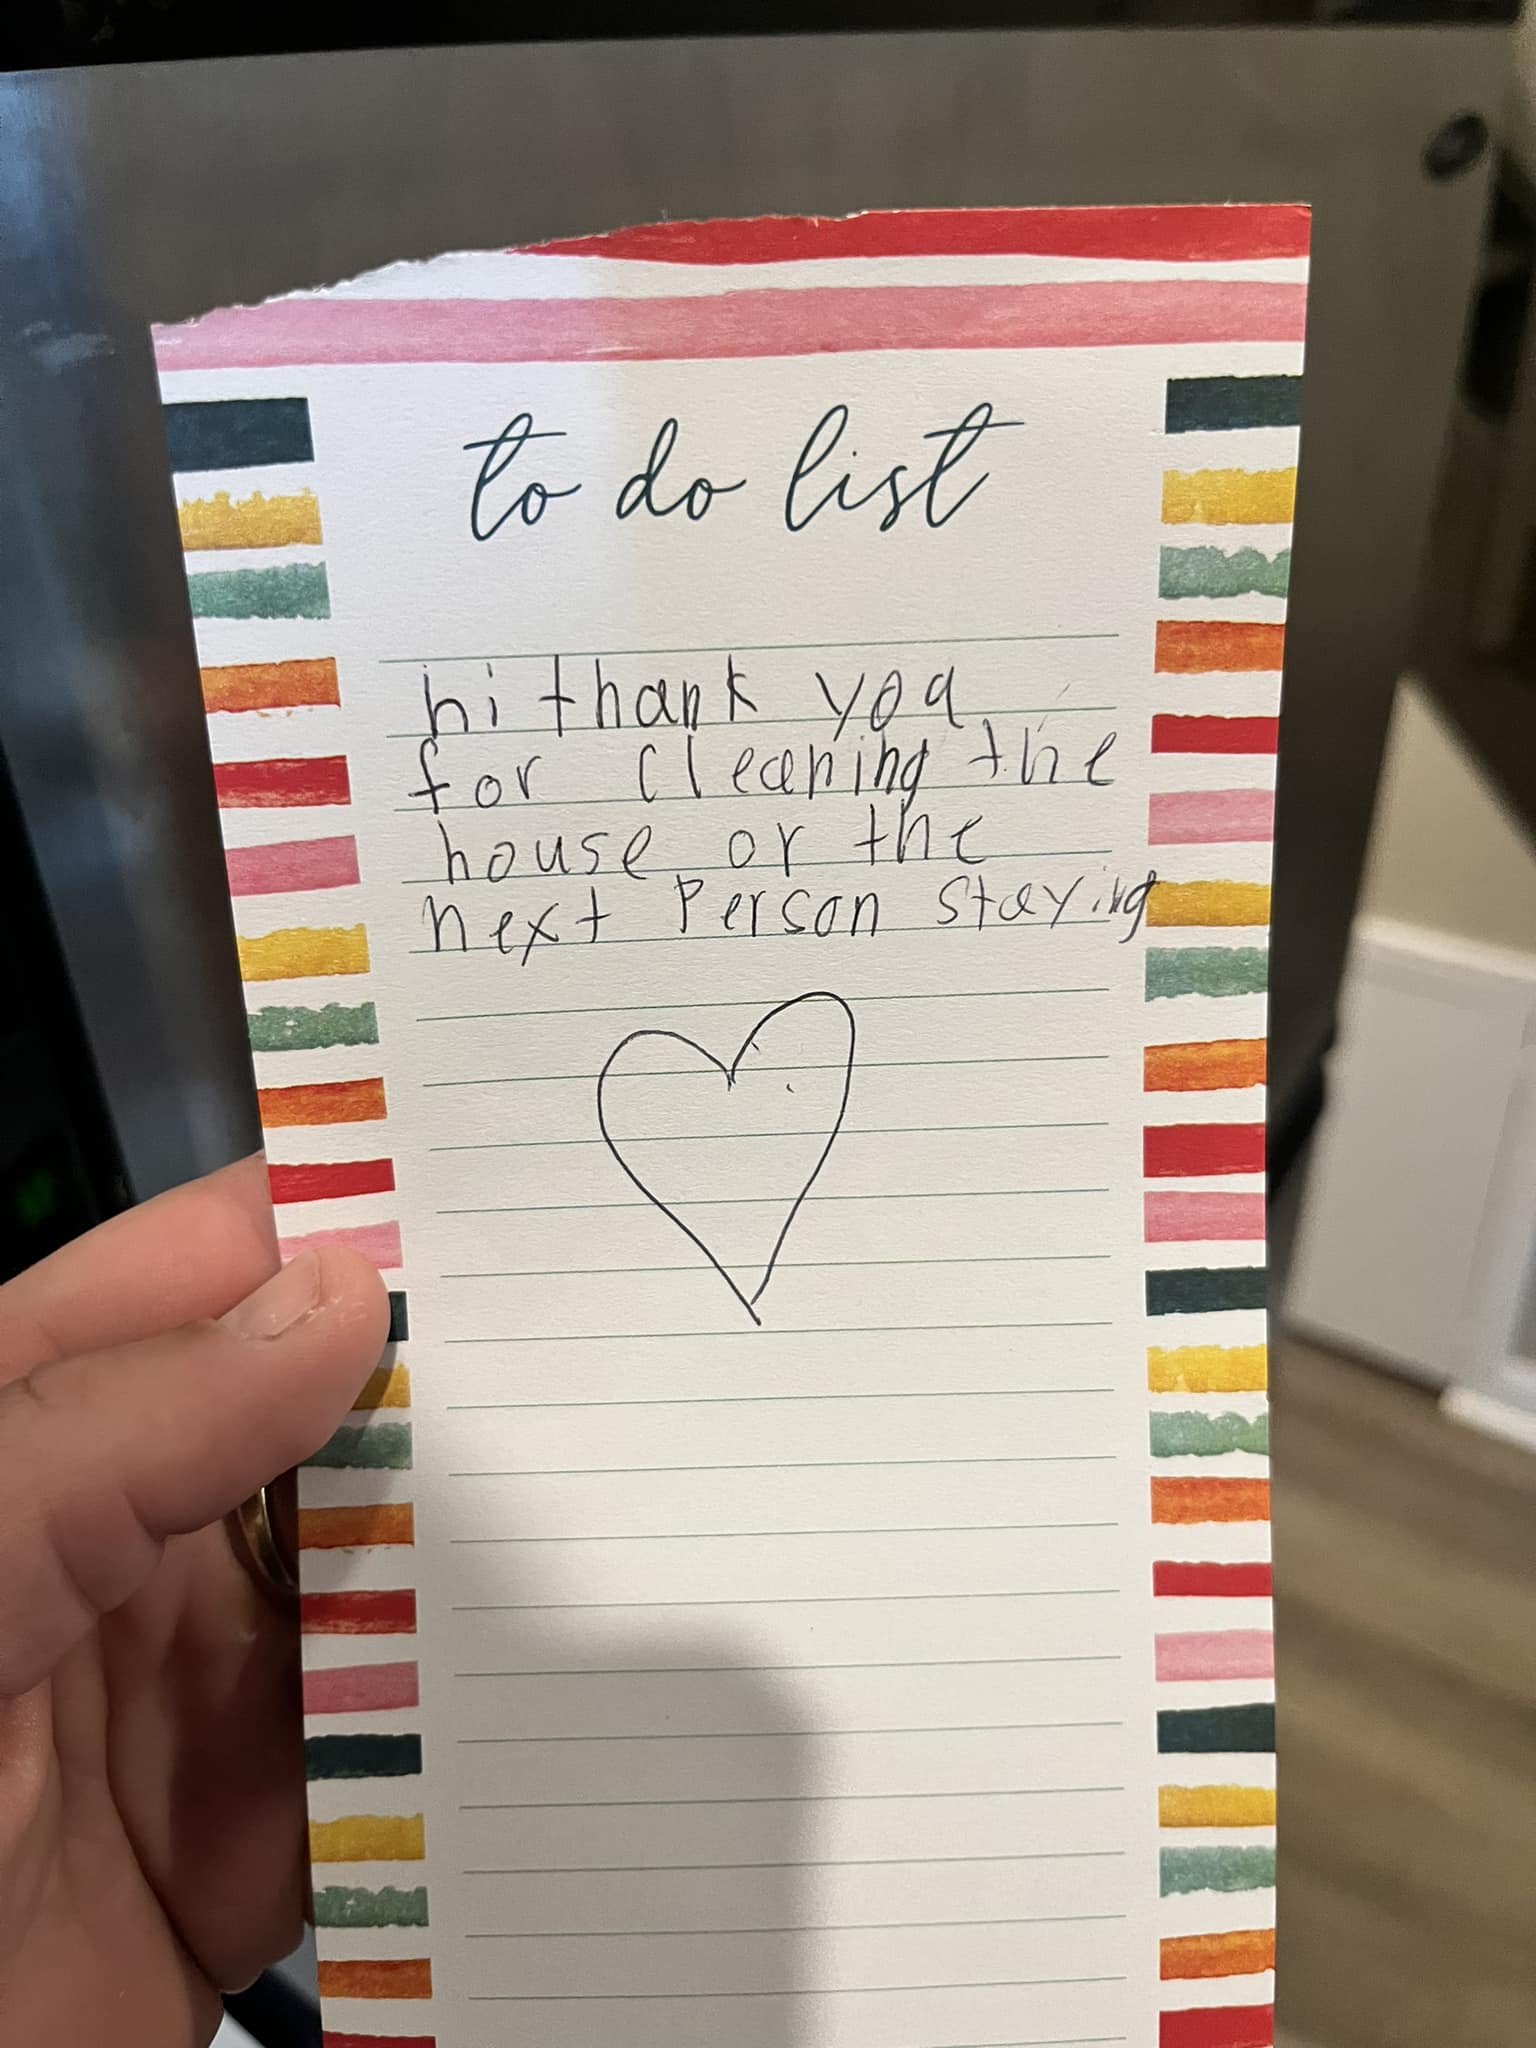 to do list
hi thank you
for cleaning the
house or the
next Person staying